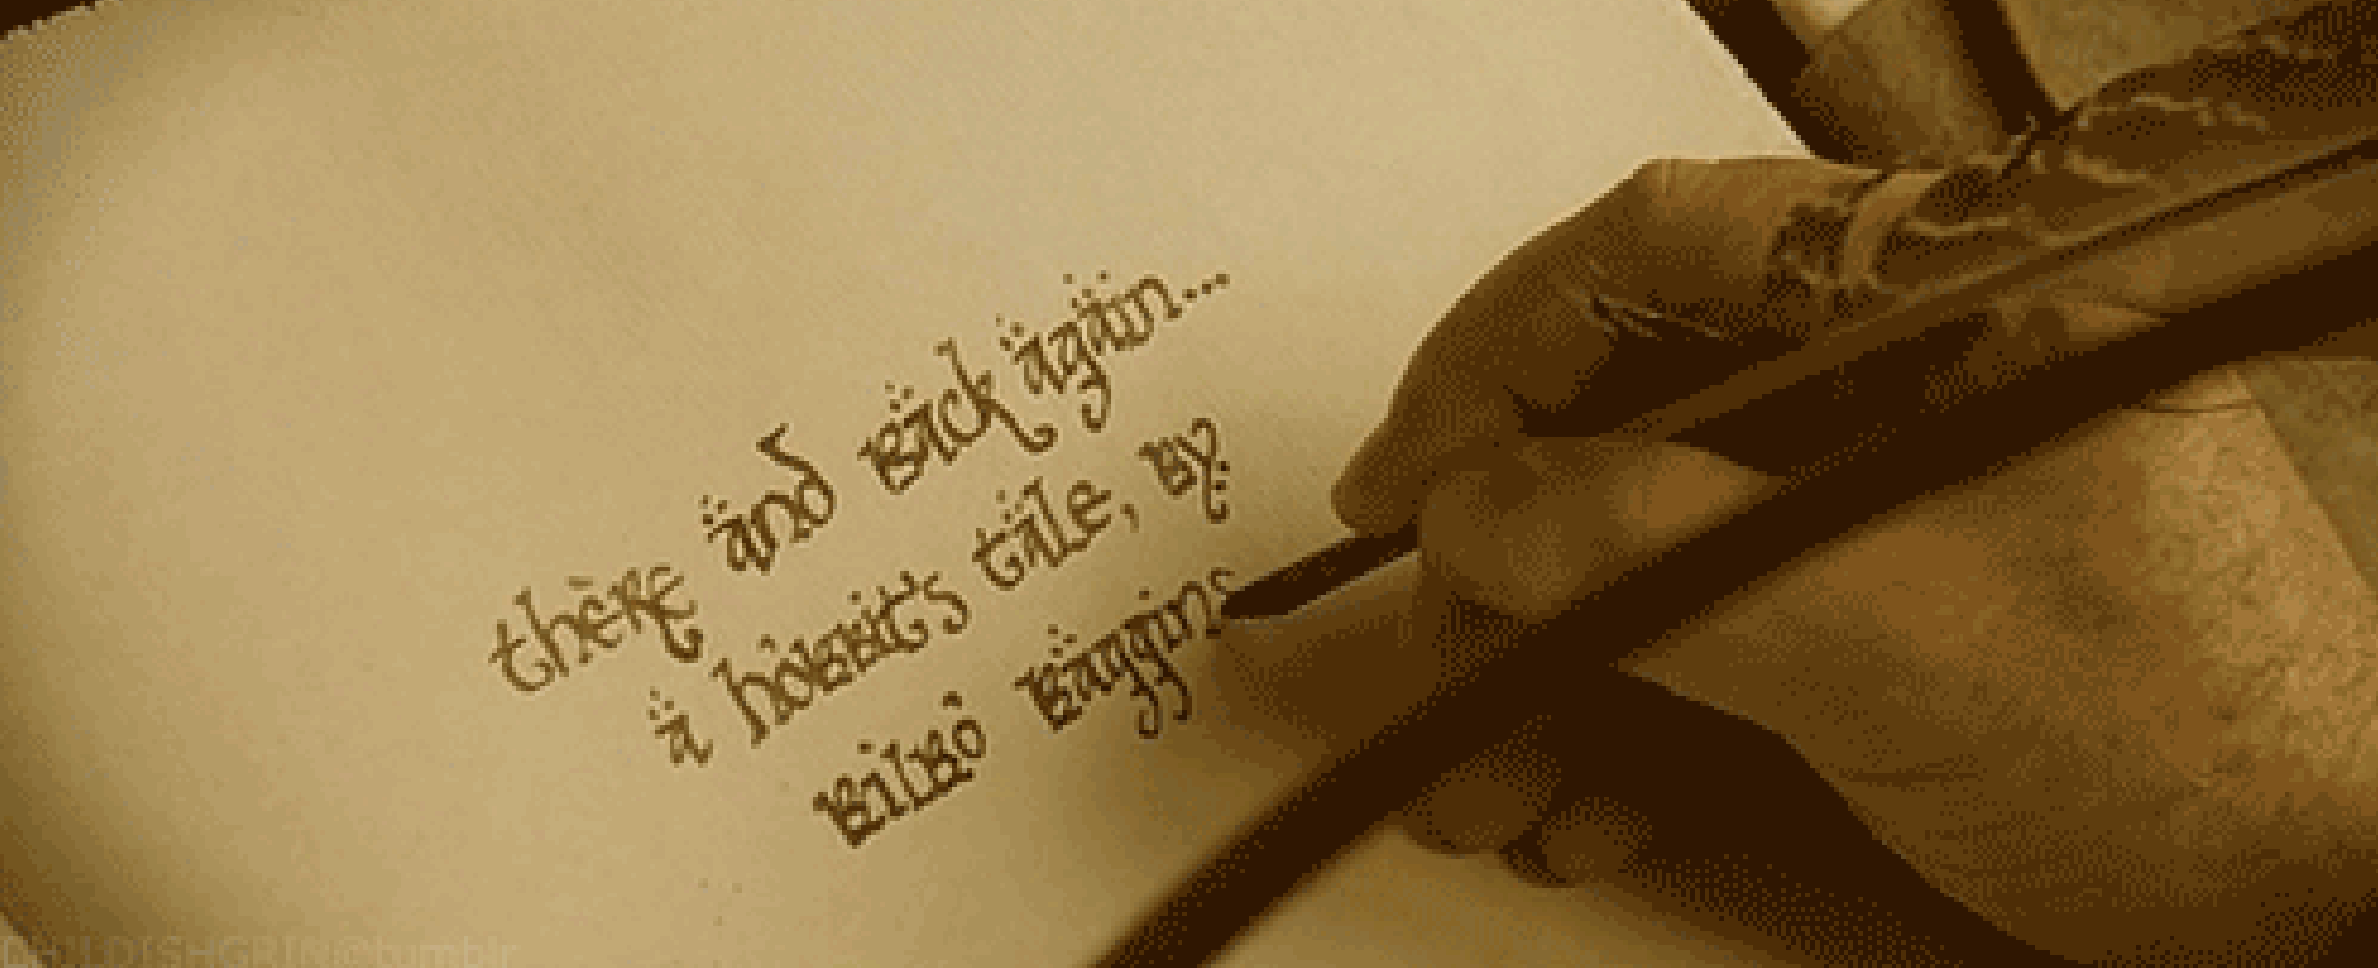 there and back again...
a hobbit's tale, by
Bilbo Baggins
CHILDISHGRIN@tumblr